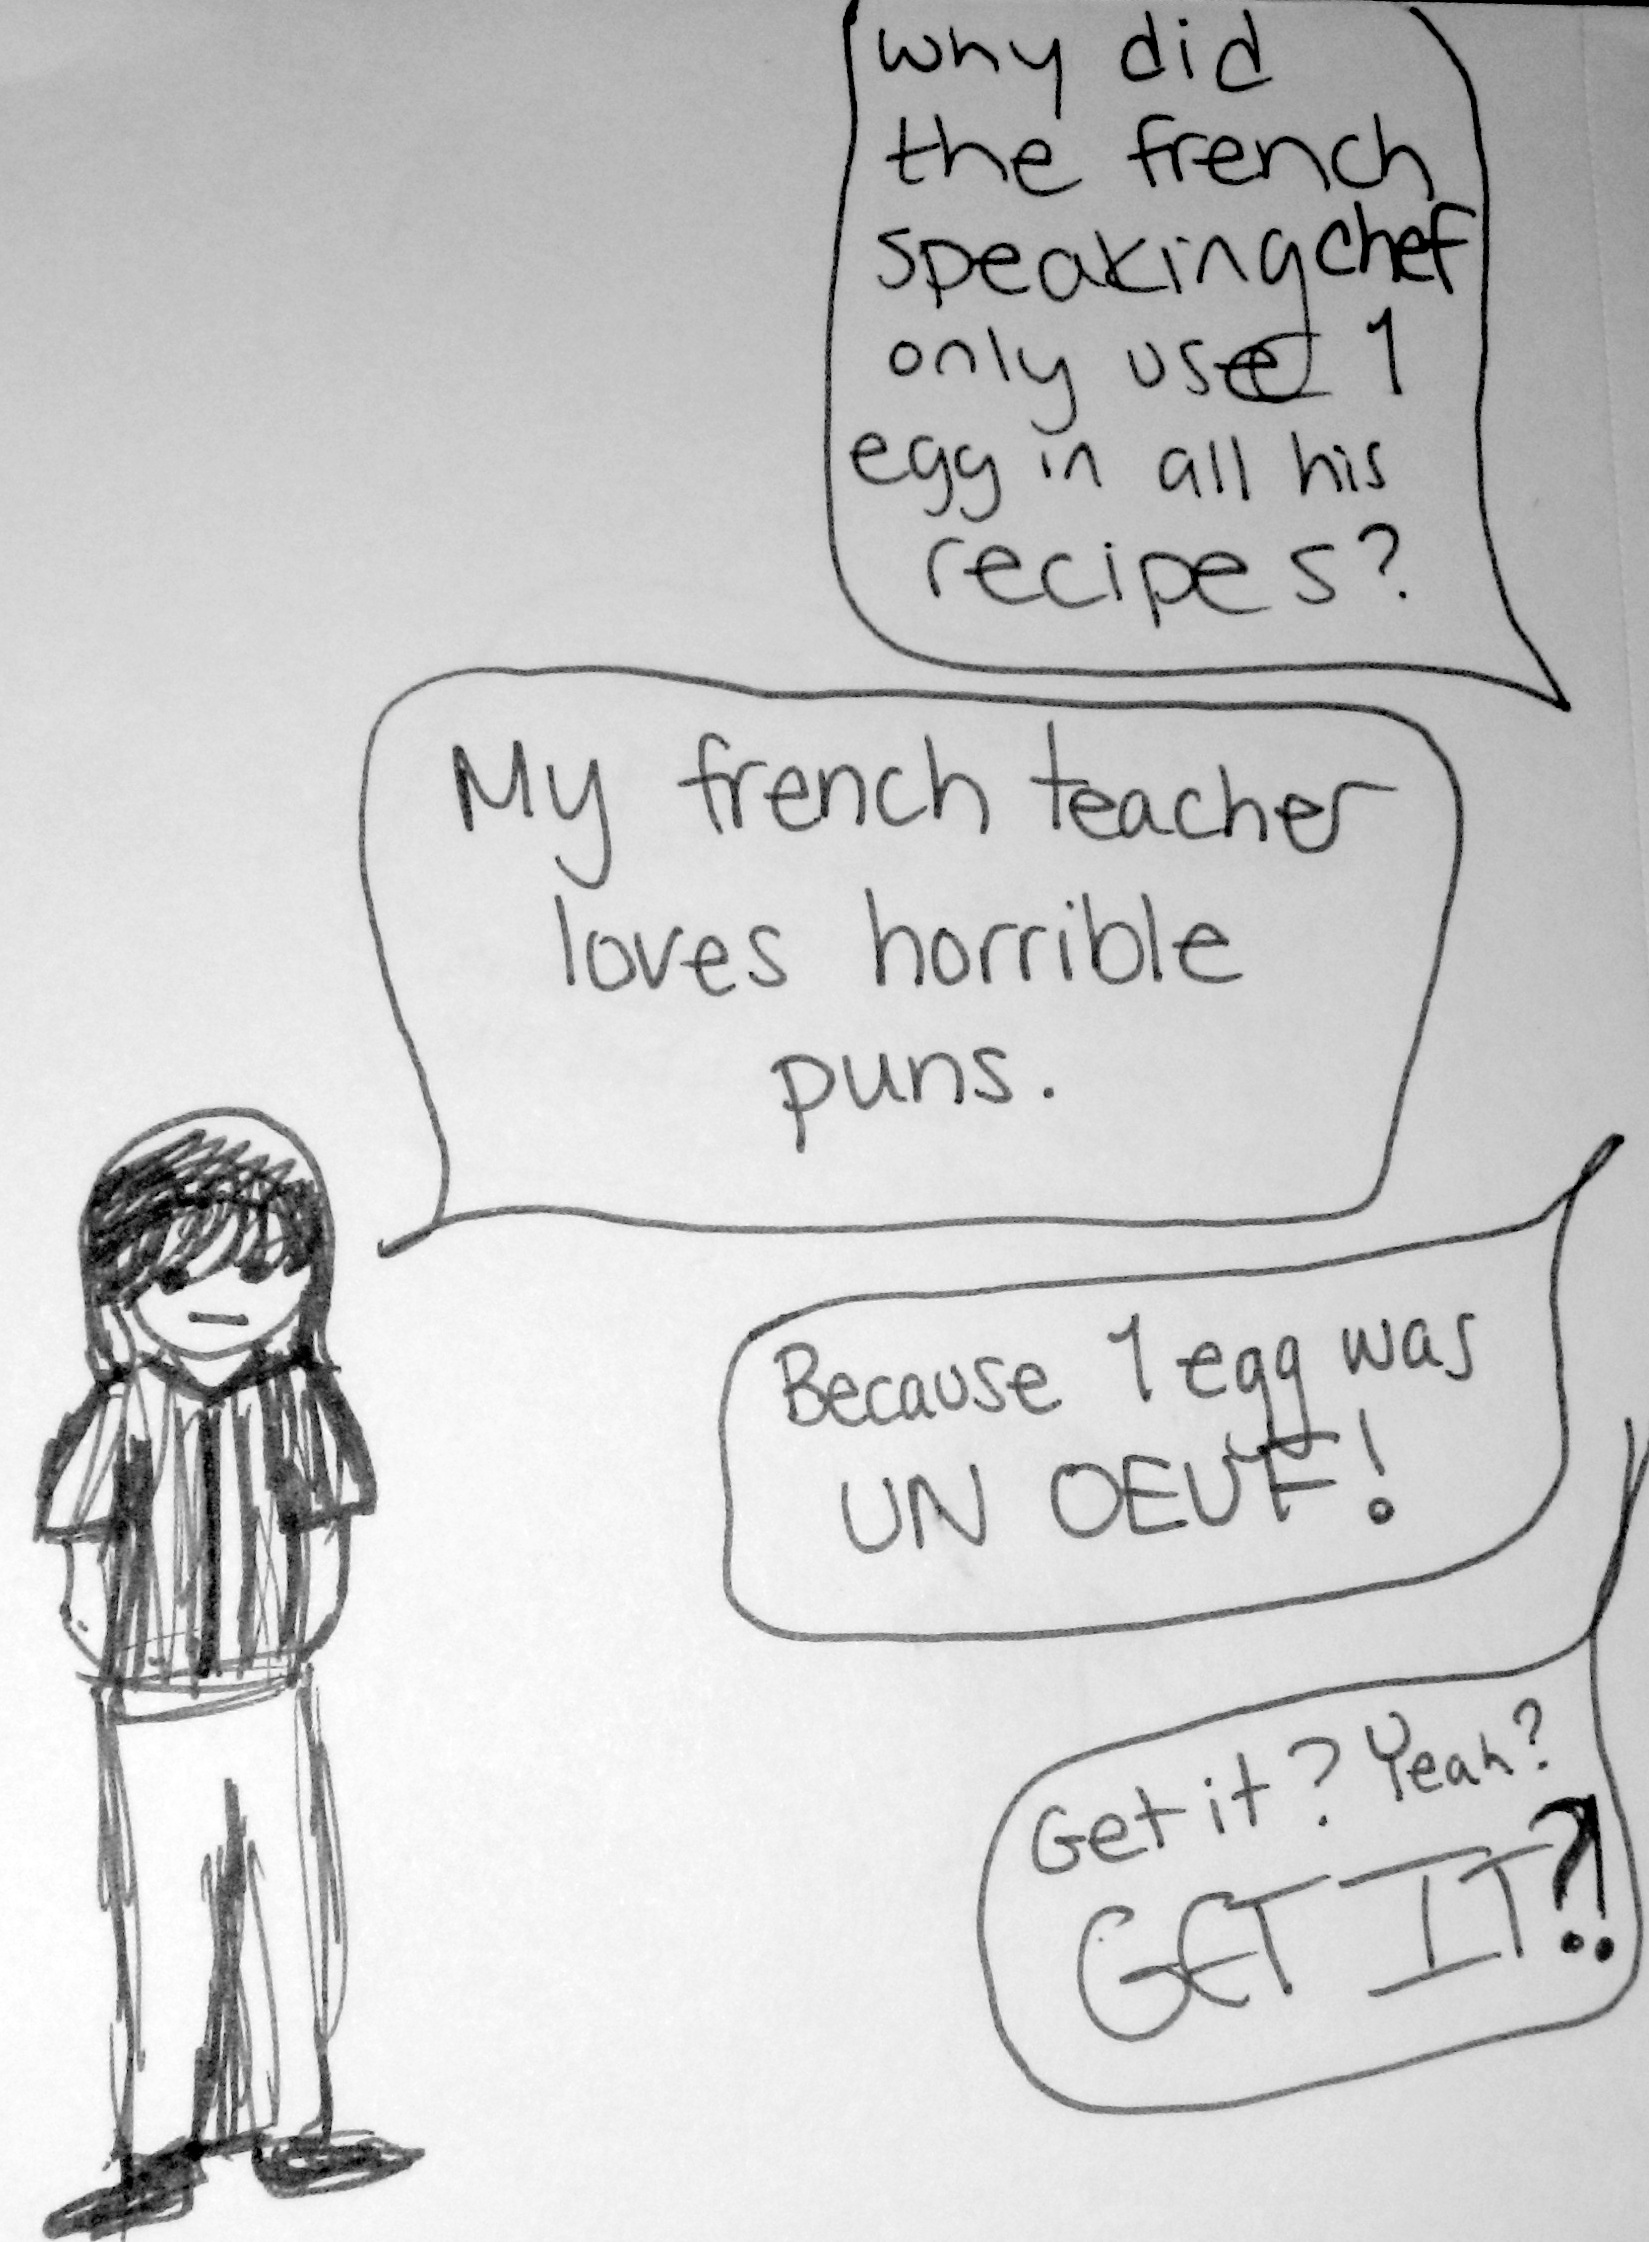 why did
the french
speaking chef
only use 1
egg in all his
recipes?
My french teacher
loves horrible
puns.
Because 1 egg was
UN OEUF!
Get it? Yeah?
GET IT?!